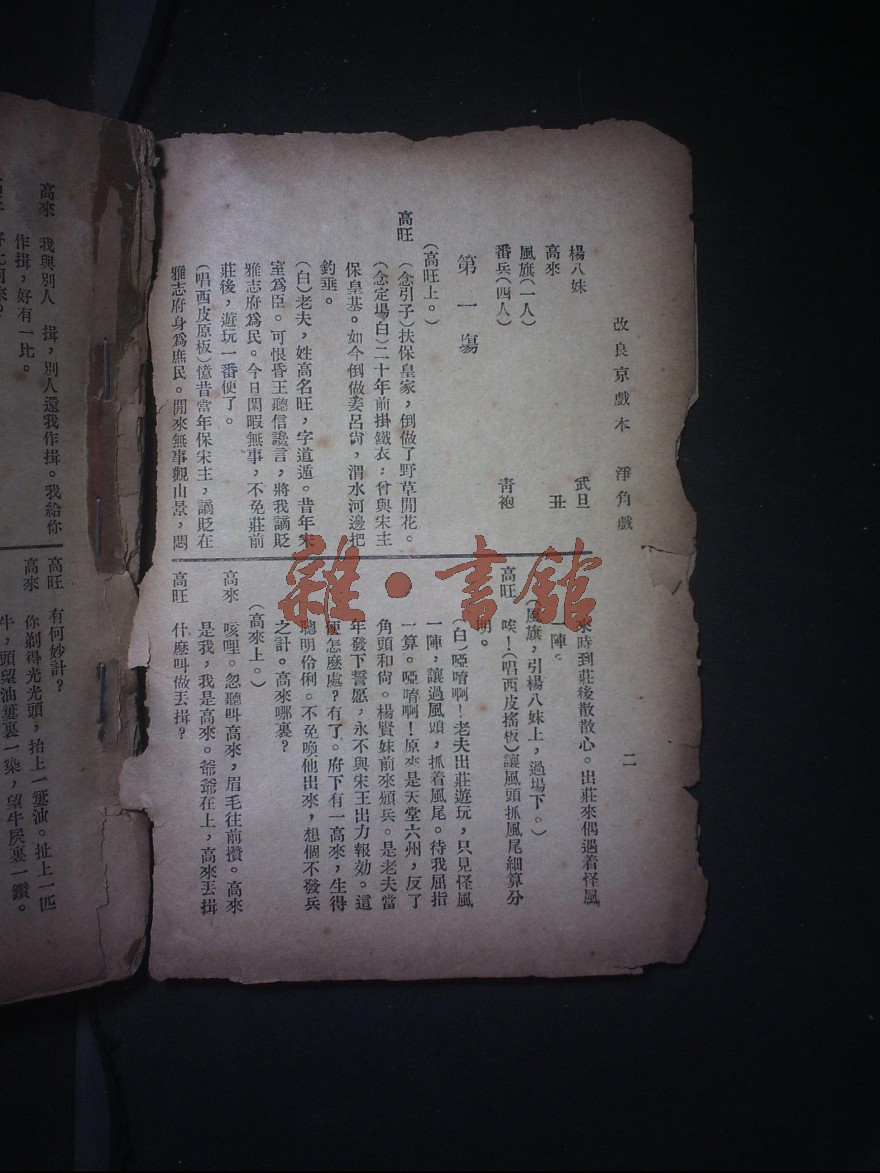 改良京戲本　淨角戲　二
楊八妹　武旦
高來　丑
風旗(一人)
番兵(四人)　青袍
第一場
(高旺上。)
高旺　(念引子)扶保皇家，倒做了野草閒花。
(念定場白)二十年前掛鐵衣；曾與宋主
保皇基。如今倒做姜呂尙，渭水河邊把
釣垂。
(白)老夫，姓高名旺，字道遁。昔年宋
室爲臣。可恨昏王聽信讒言，將我謫貶
雅志府爲民。今日閑暇無事，不免莊前
莊後，遊玩一番便了。
(唱西皮原板)憶昔當年保宋主，謫貶在
雅志府身爲庶民。閒來無事觀山景，悶
來時到莊後散散心。出莊來偶遇着怪風
一陣。
(風旗，引楊八妹上，過場下。)
高旺　唉！(唱西皮搖板)讓風頭抓風尾細算分
明。
(白)啞唷啊！老夫出莊遊玩，只見怪風
一陣，讓過風頭，抓着風尾。待我屈指
一算。啞唷啊！原來是天堂六州，反了
角頭和尙。楊賢妹前來頒兵。是老夫當
年發下誓愿，永不與宋王出力報効。這
便怎麽處？有了。府下有一高來，生得
聰明伶俐。不免喚他出來，想個不發兵
之計。高來哪裏？
(高來上。)
高來　咳哩。忽聽叫高來，眉毛往前攢。高來
是我，我是高來。爺爺在上，高來丟揖
高旺　什麽叫做丟揖？
高來　我與別人　揖，別人還我作揖。我給你
作揖，好有一比。
高旺　有何妙計？
高來　你剃得光光頭，抬上一簍油。扯上一匹
牛，頭望油簍裏一染，望牛屄裏一鑽。
雜·書館